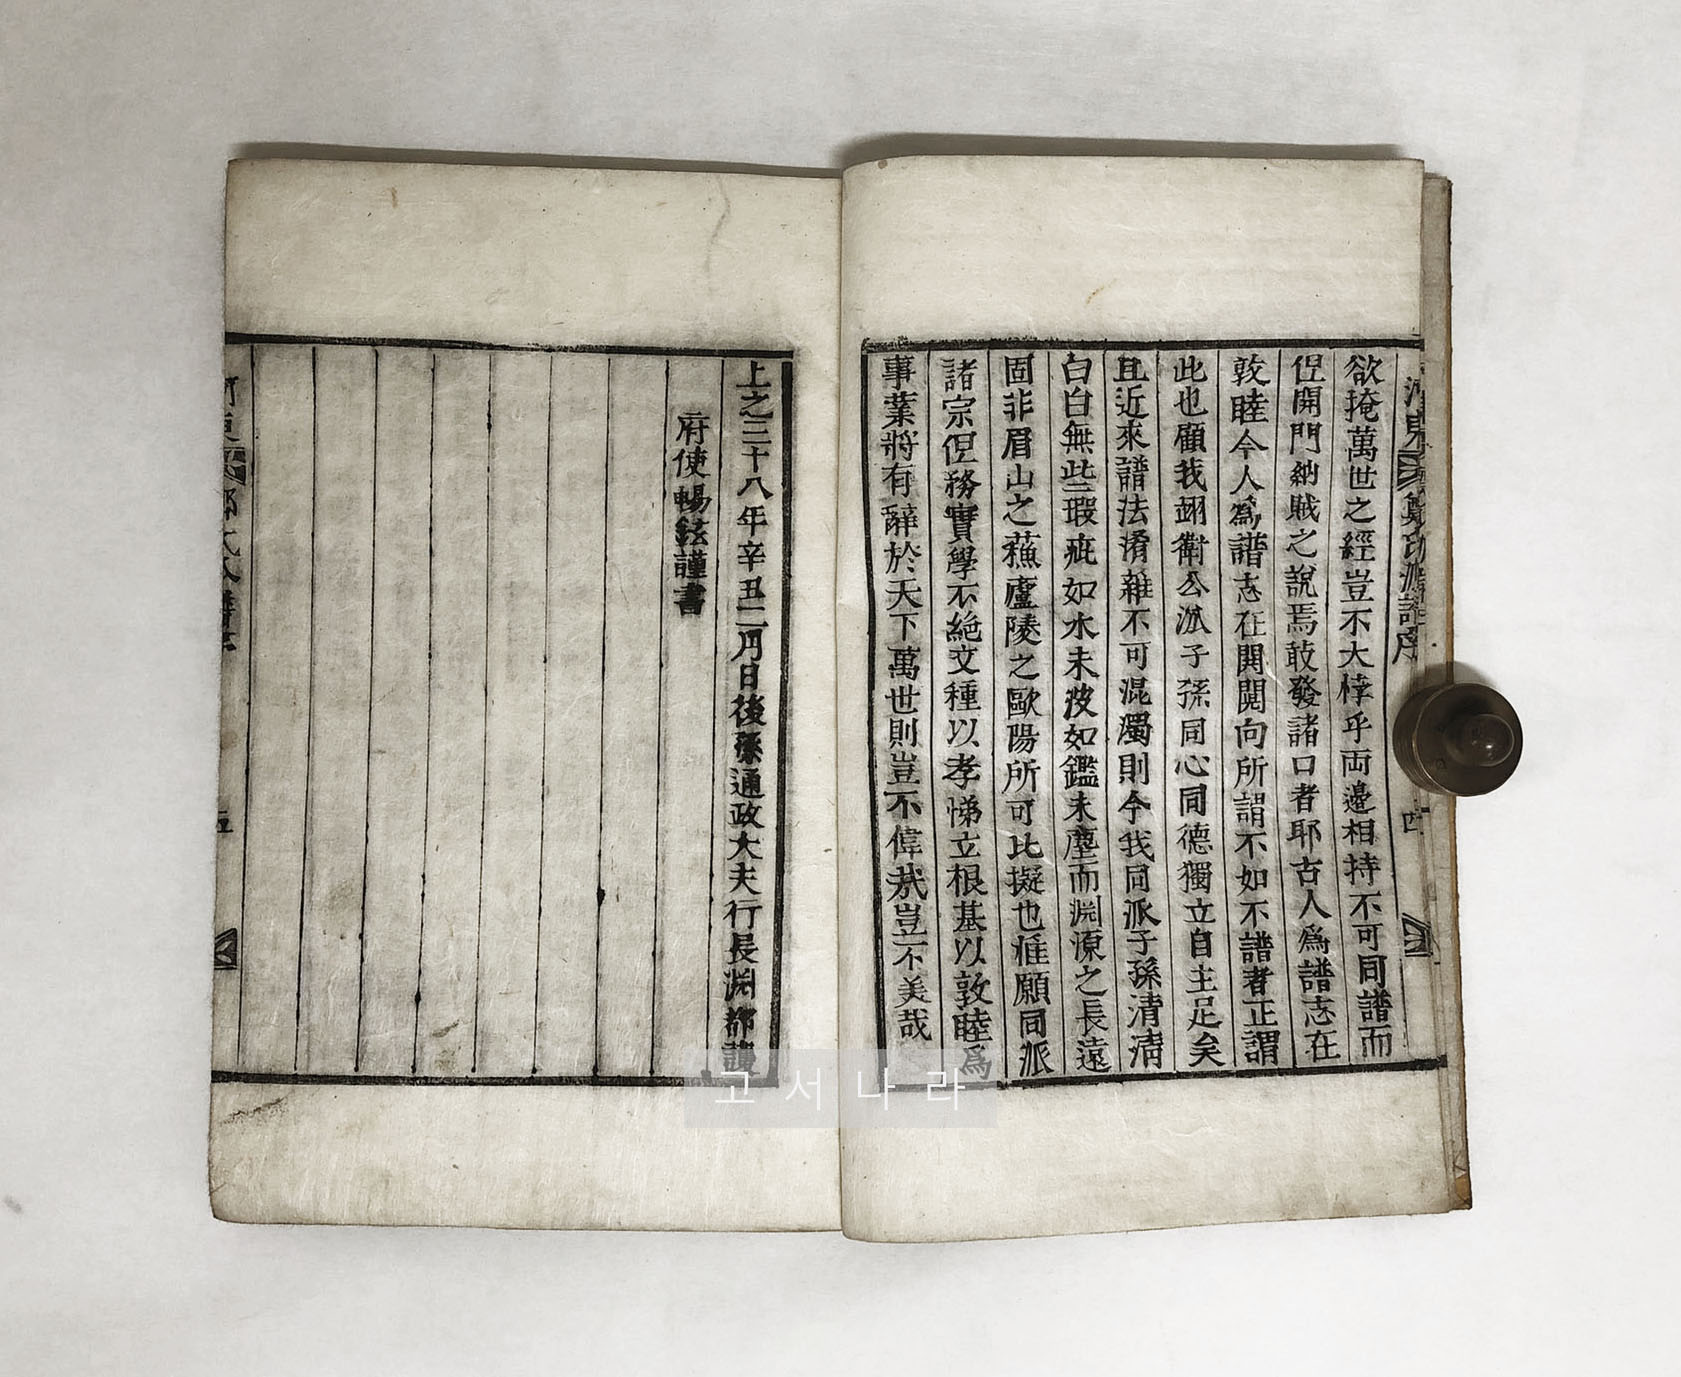 欲掩萬世之經豈不大悖乎両邉相持不可同譜而
但開門納賊之說焉敢發諸口者耶古人爲譜志在
敦睦今人爲譜志在開閱向所謂不如不譜者正謂
此也顧我翊衛公派子孫同心同德獨立自主足矣
且近來譜法淆雜不可混濁則今我同派子孫清清
白白無些瑕疵如水未波如鑑未塵而淵源之長遠
固非眉山之蘇廬陵之歐陽所可比擬也惟願同派
諸宗但務實學不絶文種以孝悌立根基以敦睦爲
事業將有辭於天下萬世則豈不偉哉豈不美哉
上之三十八年辛丑二月日後孫通政大夫行長淵都護
府使暢鉉謹書
고서나라